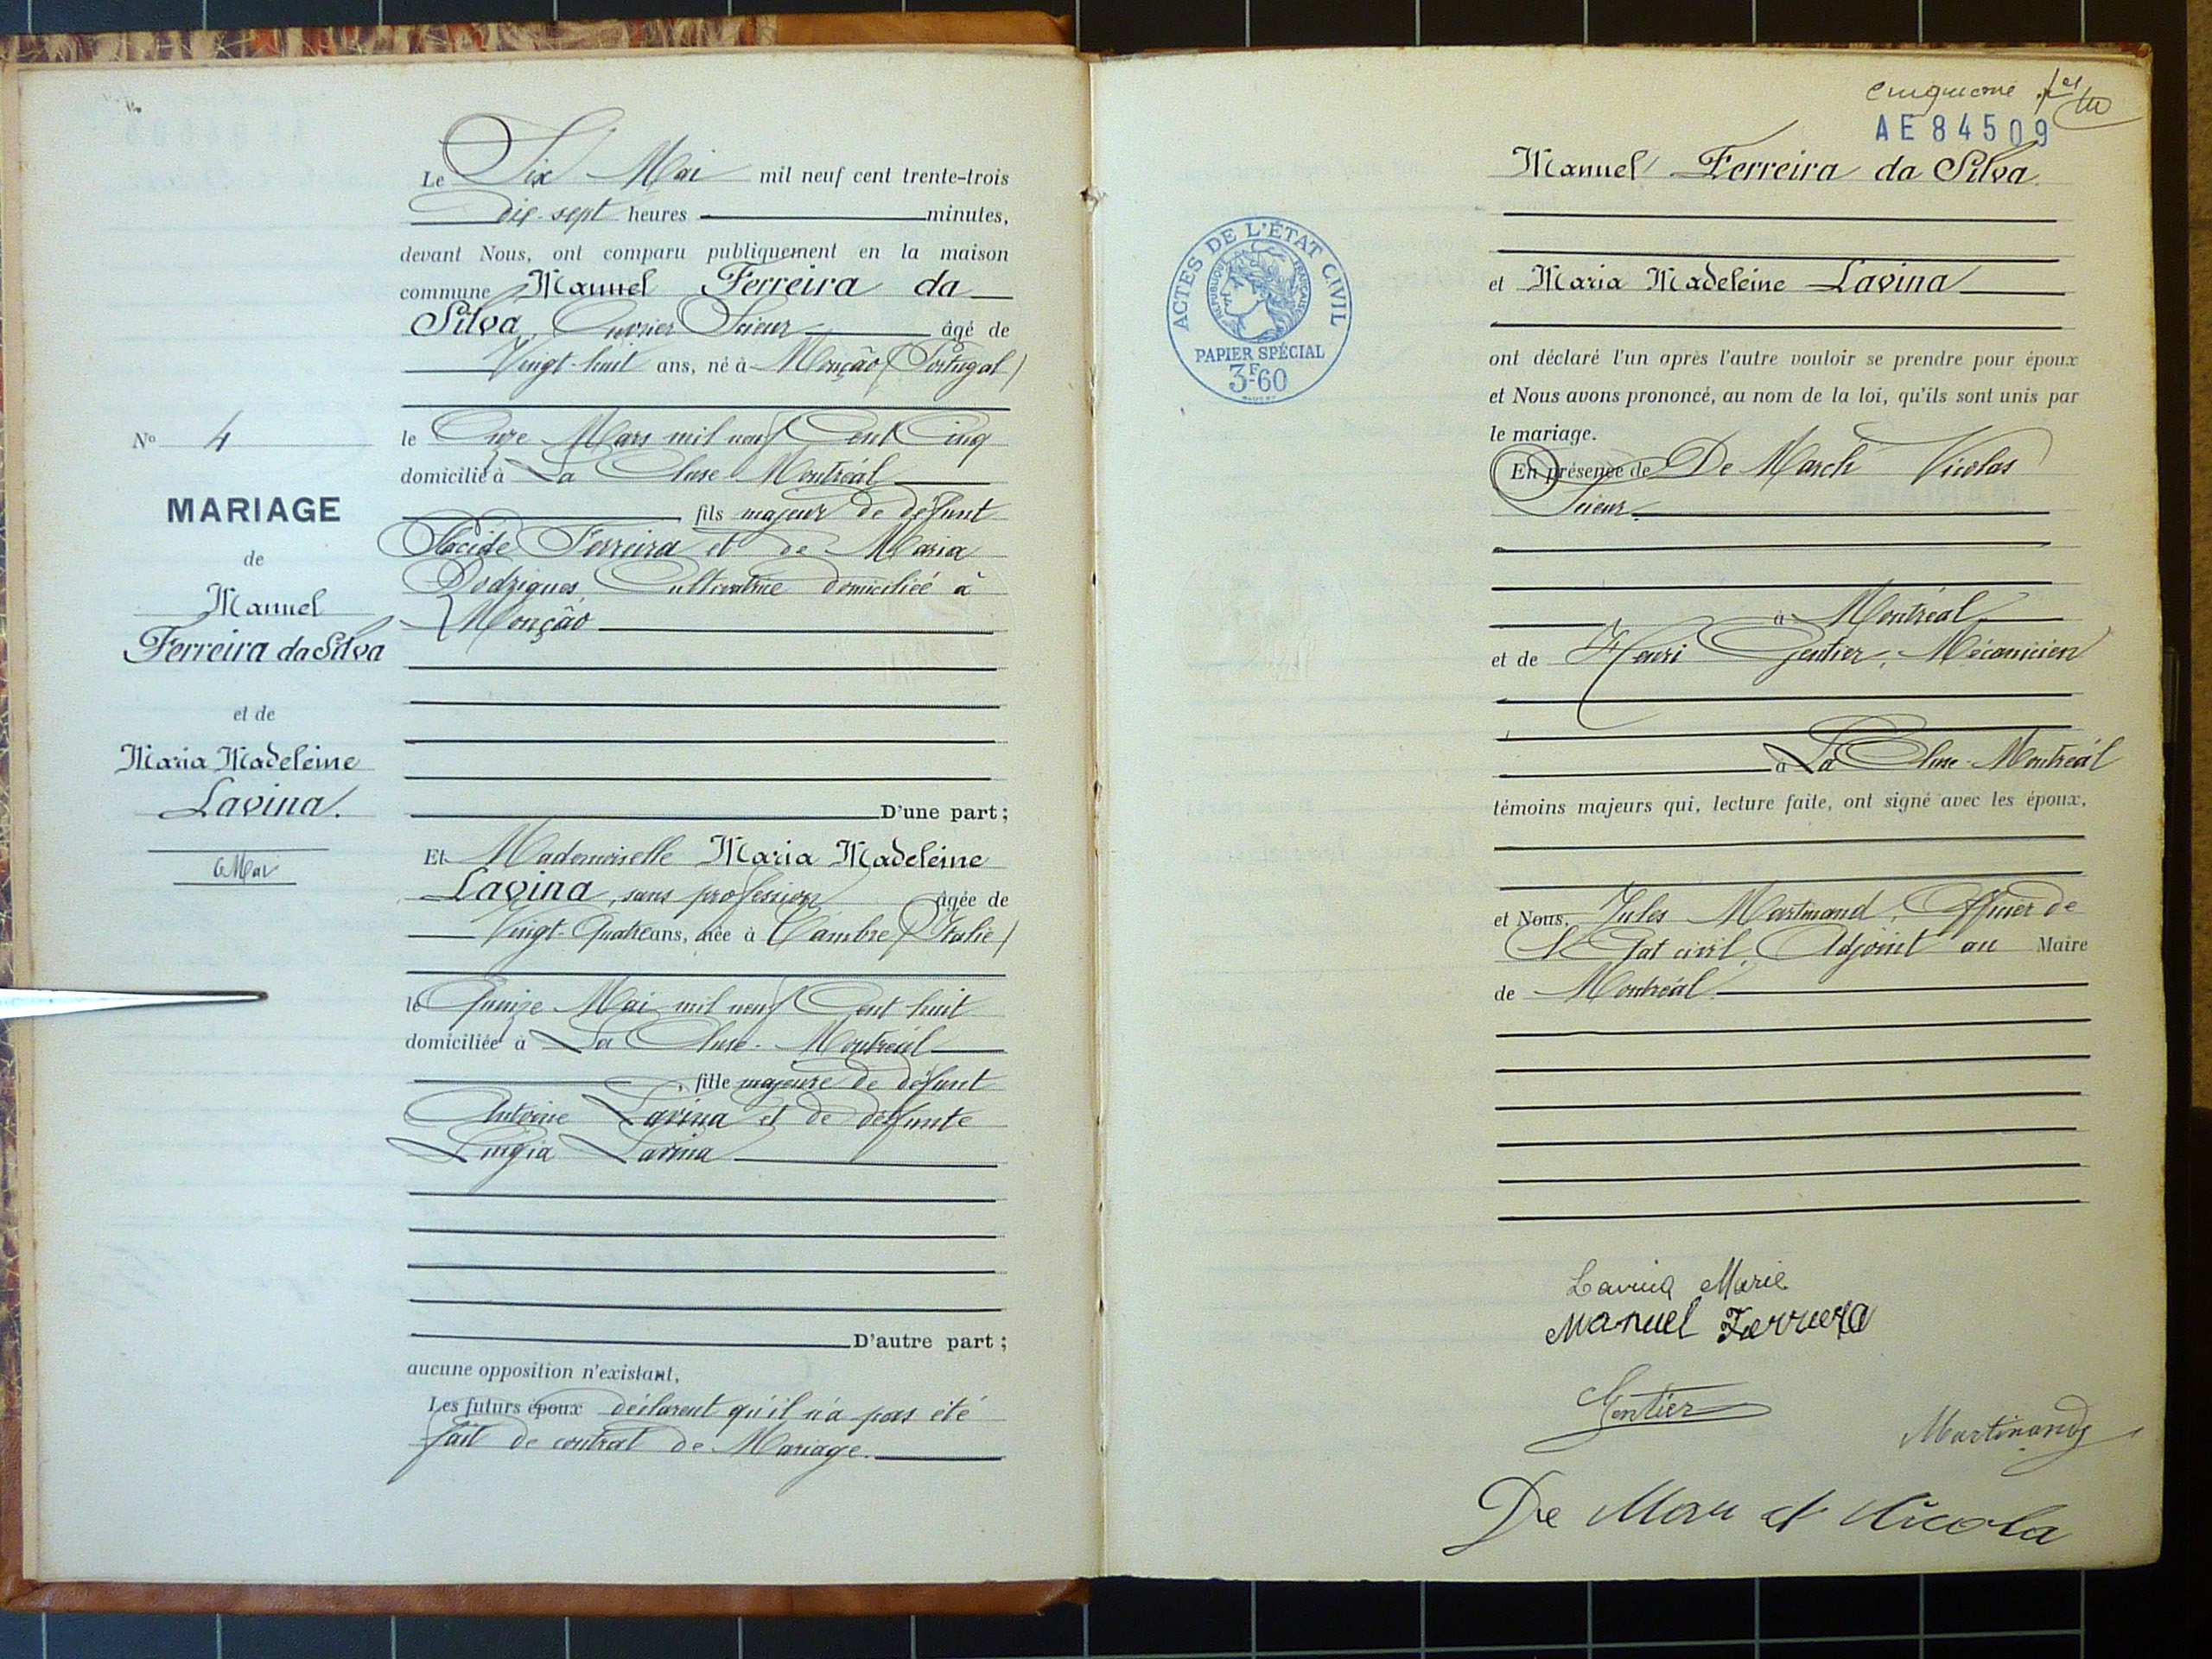 Le Six Mai mil neuf cent trente-trois
dix-sept heures minutes,
devant Nous, ont comparu publiquement en la maison
commune Manuel Ferreira da
Silva, Ouvrier Scieur âgé de
Vingt-huit ans, né à Monção (Portugal)
Nº 4
MARIAGE
de
Manuel
Ferreira da Silva
et de
Maria Madeleine
Lavina.
6 Mai
le Onze Mars mil neuf Cent Cinq
domicilié à La Cluse-Montréal
fils majeur de défunt
Placide Ferreira et de Maria
Rodrigues, Cultivatrice domiciliée à
Monção
D'une part ;
Et Mademoiselle Maria Madeleine
Lavina, sans profession âgée de
Vingt-Quatre ans, née à Cambre (Italie)
le Quinze Mai mil neuf Cent huit
domiciliée à La Cluse-Montréal
, fille majeure de défunt
Antoine Lavina et de défunte
Luigia Lavina
D'autre part ;
aucune opposition n'existant,
Les futurs époux déclarent qu'il n'a pas été
fait de contrat de Mariage.
cinquième
AE84509
Manuel Ferreira da Silva
et Maria Madeleine Lavina
ACTES DE L'ÉTAT CIVIL
RÉPUBLIQUE FRANÇAISE
PAPIER SPÉCIAL
3F-60
ont déclaré l'un après l'autre vouloir se prendre pour époux
et Nous avons prononcé, au nom de la loi, qu'ils sont unis par
le mariage.
En présence de De March Nicolas
Scieur
à Montréal
et de Henri Gentier, Mécanicien
à La Cluse-Montréal
témoins majeurs qui, lecture faite, ont signé avec les époux.
et Nous, Jules Martinand, Officier de
l'Etat civil, Adjoint au Maire
de Montréal.
Lavina Marie
Manuel Ferreira
Gentier
Martinand
De Marc et Nicola